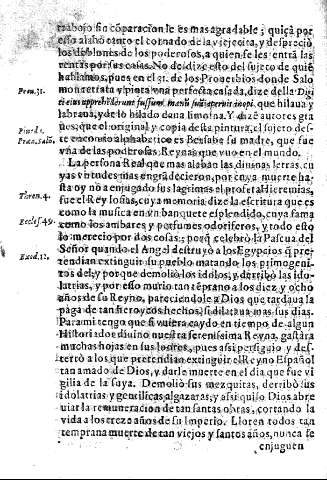 trabajo sin cōparacion le es mas agradable; quiçà por
esso alabò tanto el cornado de la viejecita, y despreciò
los doblones de los poderosos, a quien se les entrà las
rentas por sus casas. No desdize esto del sujeto de quiē
hablamos, pues en el 31. de los Prouerbios donde Salo
Prou. 31. monretrata y pinta vna perfecta casada, dize della Digi
ti eius apprehēderunt fusum, manū suā aperuit inopi. que hilaua y
labraua, y de lo hilado daua limosna. Y dizē autores gra
ues, que el original y copia desta pintura, el sujeto des-
te encomio alphabetico es Bersabe su madre, que fue
vna de las poderosas Reynas que vuo en el mundo.
La persona Real que mas alaban las diuinas letras, cu
yas virtudes mas engrādecieron, por cuya muerte ha-
sta oy no a enjugado sus lagrimas el profeta Hieremias,
Tren. 4. fue el Rey Iosias, cuya memoria dize la escritura que es
como la musica en vn banquete esplendido, cuya fama
Eccles. 49. como los ambares y perfumes odoriferos, y todo esto
lo mereciò por dos cosas; porq̄ celebrò la Pascua del
Señor quando el Angel destruyò a los Egypcios q̄ pre-
Exod. 12. tendian extinguir su pueblo matando los primogeni-
tos del; y por que demoliò los idolos, y derribò las ido-
latrias, y por esso murio tan tēprano a los diez y ocho
años de su Reyno, pareciendole a Dios que tardaua la
paga de tan sieruo, y cos hechos, si dilataua mas sus dias.
Para mi tengo que si vuiera caydo en tiempo de algun
Historiador diuino nuestra serenissima Reyna, gastàra
muchas hojas en sus loores, pues assi persiguio y des-
terrò a los que pretendian extinguir el Reyno Español
tan amado de Dios, y darle muerte en el dia que fue vi
gilia de la suya. Demoliò sus mezquitas, derribò sus
idolatrias y gentilicas algazaras; y assi quiso Dios abre
uiar la remuneracion de tan santas obras, cortando la
vida a los treze años de su Imperio. Lloren todos tan
temprana muerte de tan viejos y santos años, nunca se
enjuguen